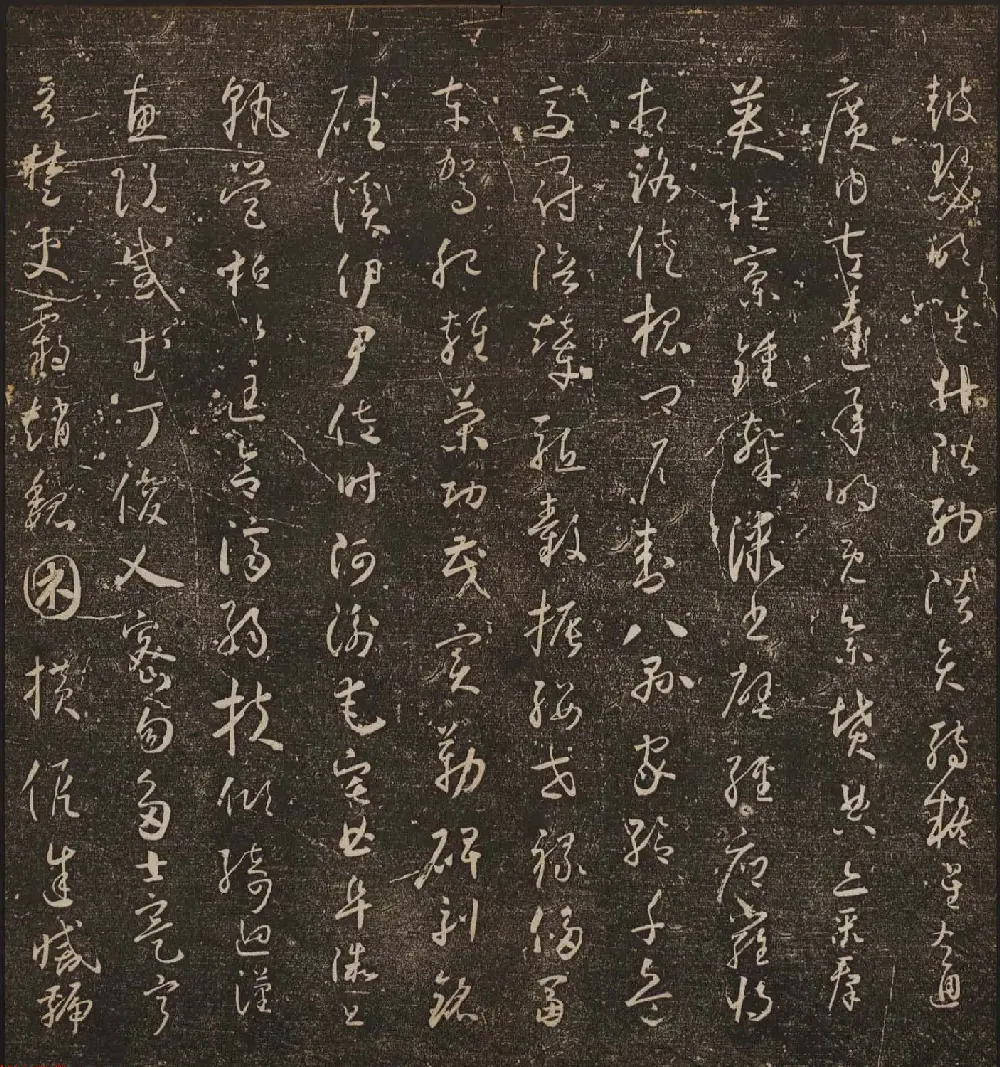 鼓瑟吹笙升階納陛弁轉疑星右通
廣內左達承明既集墳典亦聚群
英杜稾鍾隸漆書壁經府羅將
相路俠槐卿戶封八縣家給千兵
高冠陪輦驅轂振纓世祿侈富
車駕肥輕策功茂實勒碑刻銘
磻溪伊尹佐時阿衡奄宅曲阜微旦
孰營桓公匡合濟弱扶傾綺迴漢
惠說感武丁俊乂密勿多士寔寧
晉楚更霸趙魏困橫假途滅虢